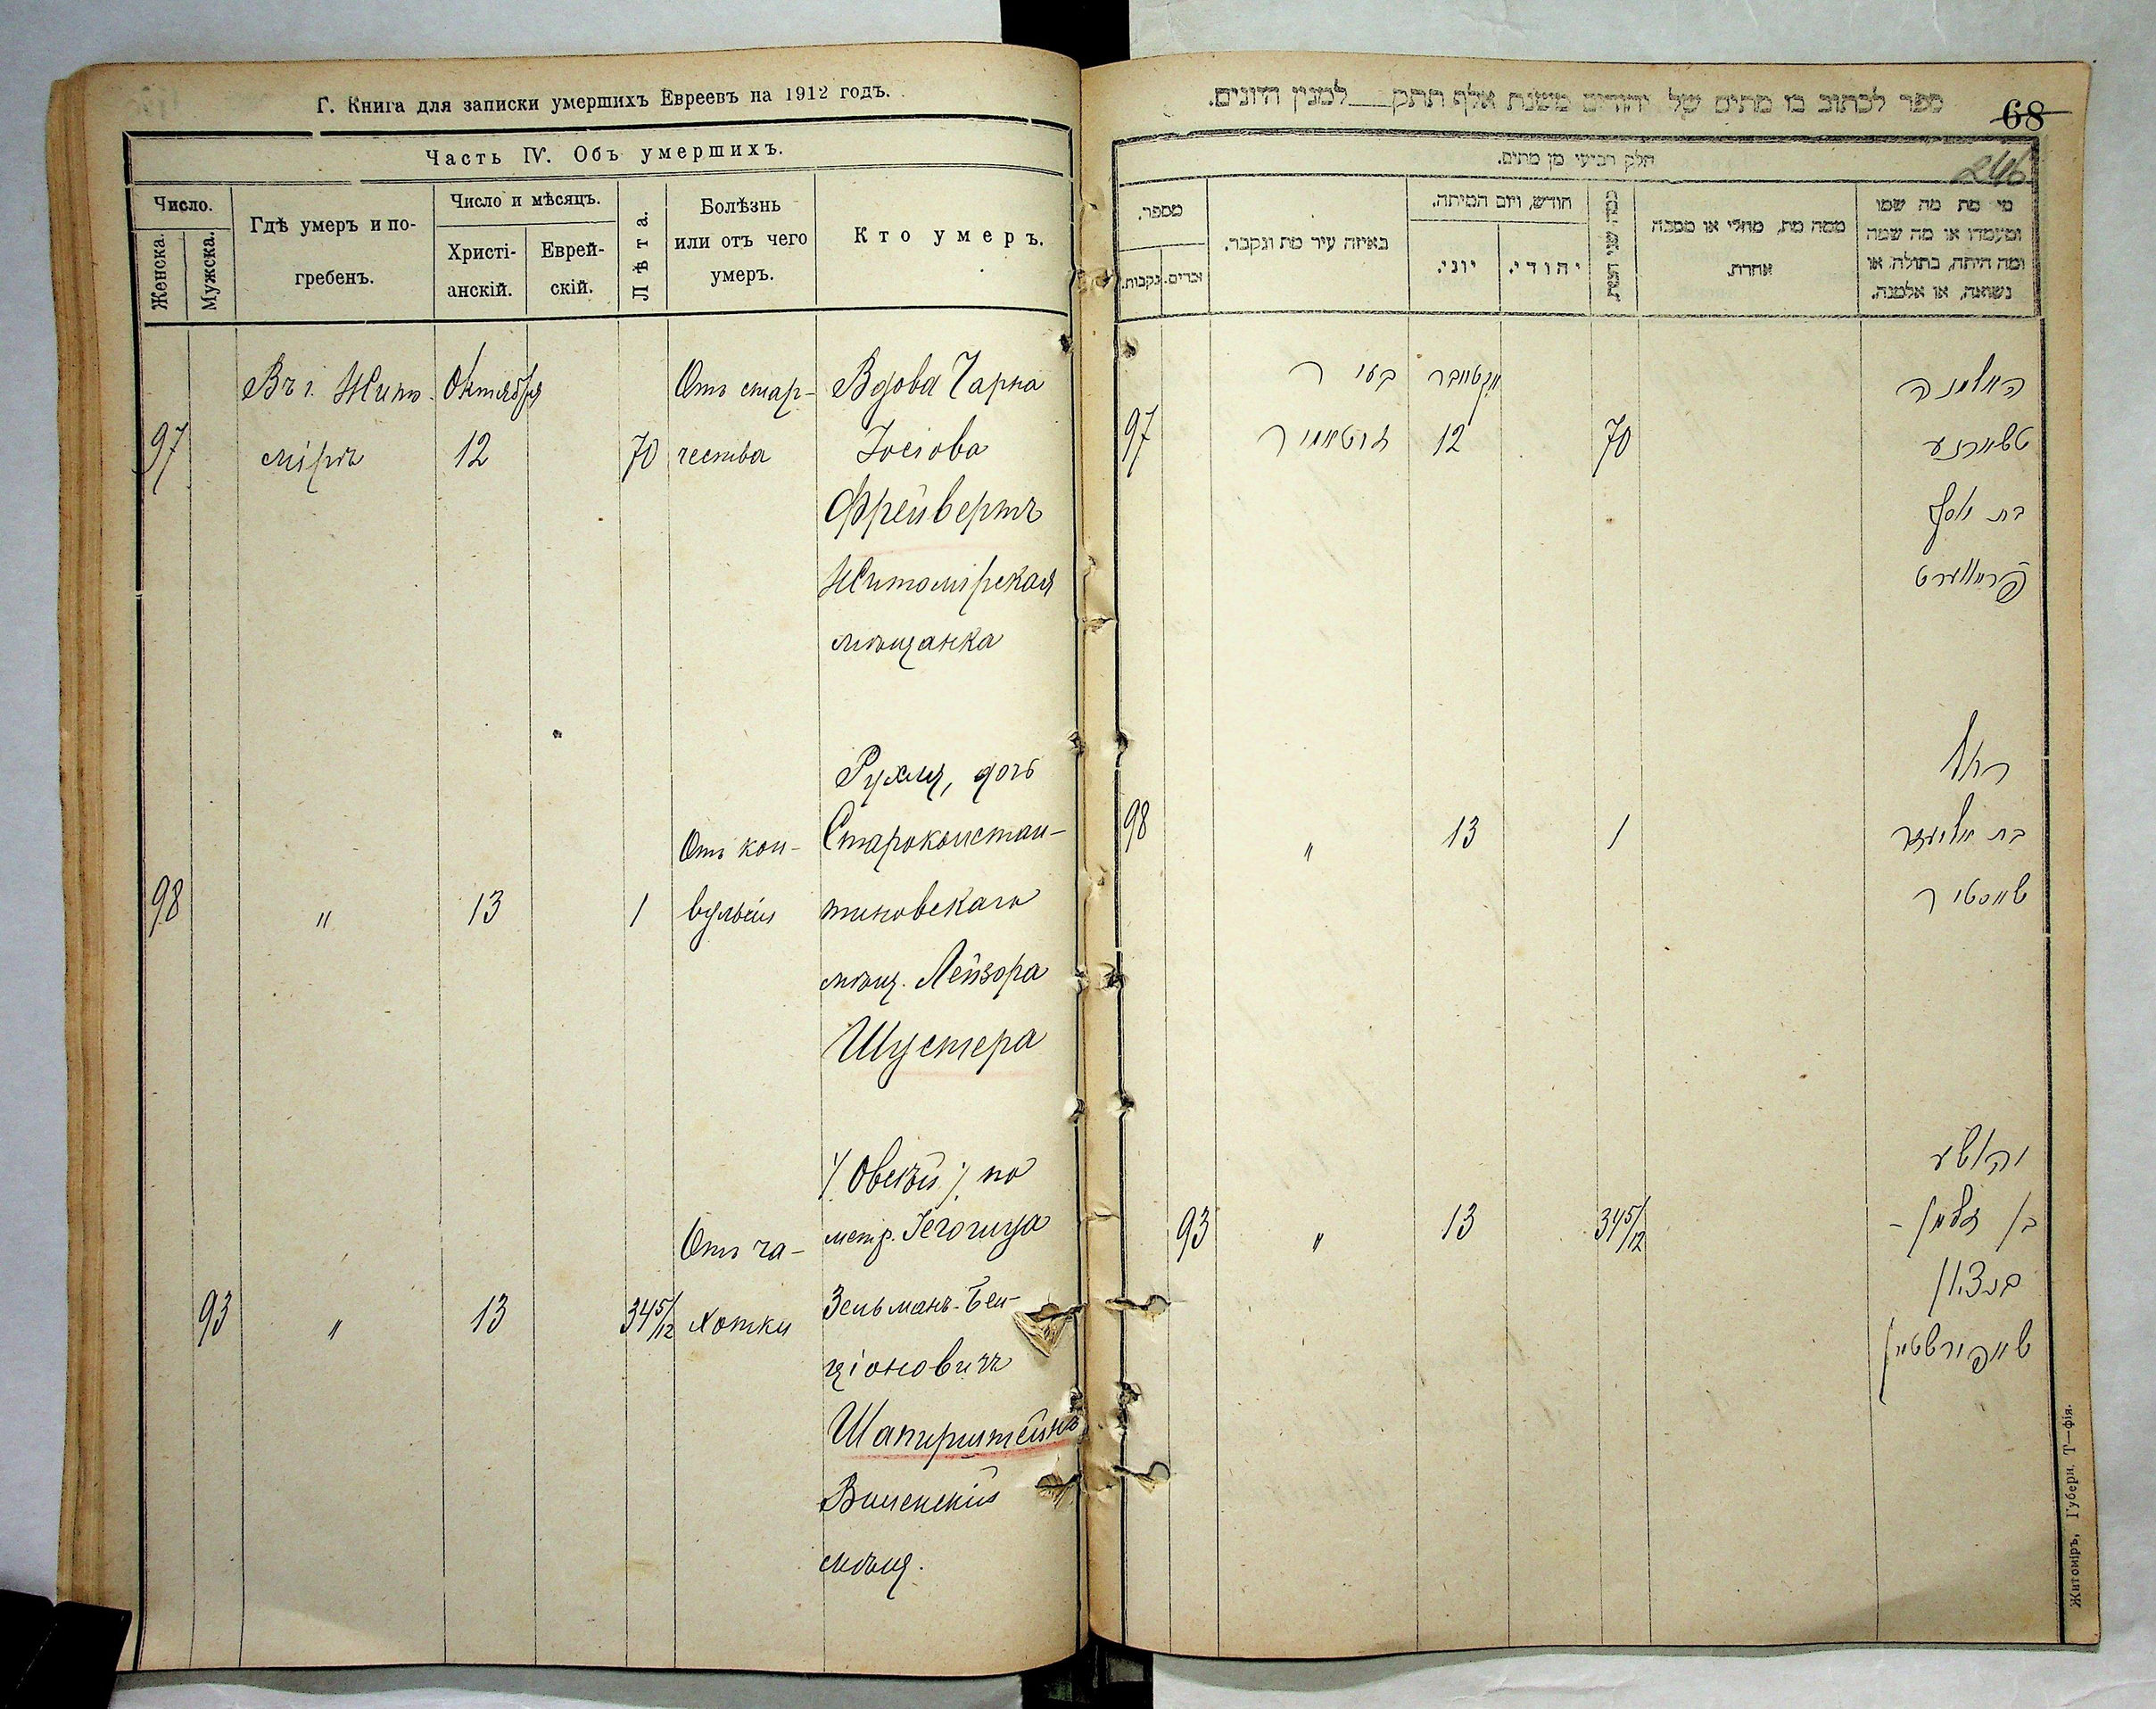 Г. Книга для записки умершихъ Евреевъ на 1912 годъ.
Часть IV. Объ умершихъ.
Число.
Женска.
Мужска.
Гдѣ умеръ и по-
гребенъ.
Число и мѣсяцъ.
Христі-
анскій.
Еврей-
скій.
Лѣта.
Болѣзнь
или отъ чего
умеръ.
Кто умеръ.
97
Въ г. Жито-
мірѣ
Октября
12
70
Отъ стар-
чества
Вдова Чарна
Іосіова
Фрейвертъ
Житомірская
мѣщанка
98
"
13
1
Отъ кон-
вульсій
Рухля, дочь
Староконстан-
тиновскаго
мѣщ. Лейзора
Шустера
93
"
13
34 5/12
Отъ ча-
хотки
/. Овсѣй ./ по
метр.
Зельманъ-Бен-
ціоновичъ
Шапирштейнъ
Виленскій
мѣщ.
ספר לכתוב בו מתים של יהודים משנת אלף תתק למנין היונים.
68
246
חלק רביעי מן מתים.
מספר.
נקבות.
זכרים.
באיזה עיר מת ונקבר.
חודש, ויום המיתה.
יוני.
יהודי.
כמה שני המת.
ממה מת, מחלי או מסבה
אחרת.
מי מת מה שמו
ומעמדו או מה שמה
ומה היתה, בתולה או
נשואה, או אלמנה.
97
בעיר
זיטאמיר
אקטאבר
12
70
האלמנה
טשארנע
בת יוסף
פרייווערט
98
"
13
1
רחל
בת אליעזר
שוסטיר
93
"
13
34 5/12
יהושע
בן זלמן -
בנציון
שאפירשטיין
Житоміръ, Губерн. Т—фія.